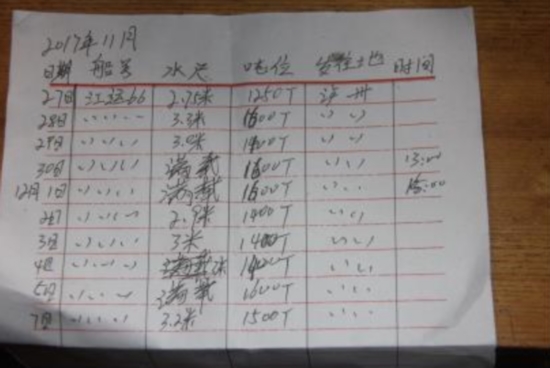 2017年11月
日期 船号 水尺 吨位 发往土地 时间
27日 江运66 2.75米 1250T
28日 〃 〃 3.3米 1600T 〃
29日 〃 〃 3.0米 1400T 〃
30日 〃 〃 满载 1600T 〃 13:00
12月1日 〃 〃 满载 1600T 〃 15:00
2日 〃 〃 2.9米 1400T 〃
3日 〃 〃 3米 1400T 〃
4日 〃 〃 满载 〃
5日 〃 〃 满载 1600T 〃
7日 〃 〃 3.2米 1500T 〃